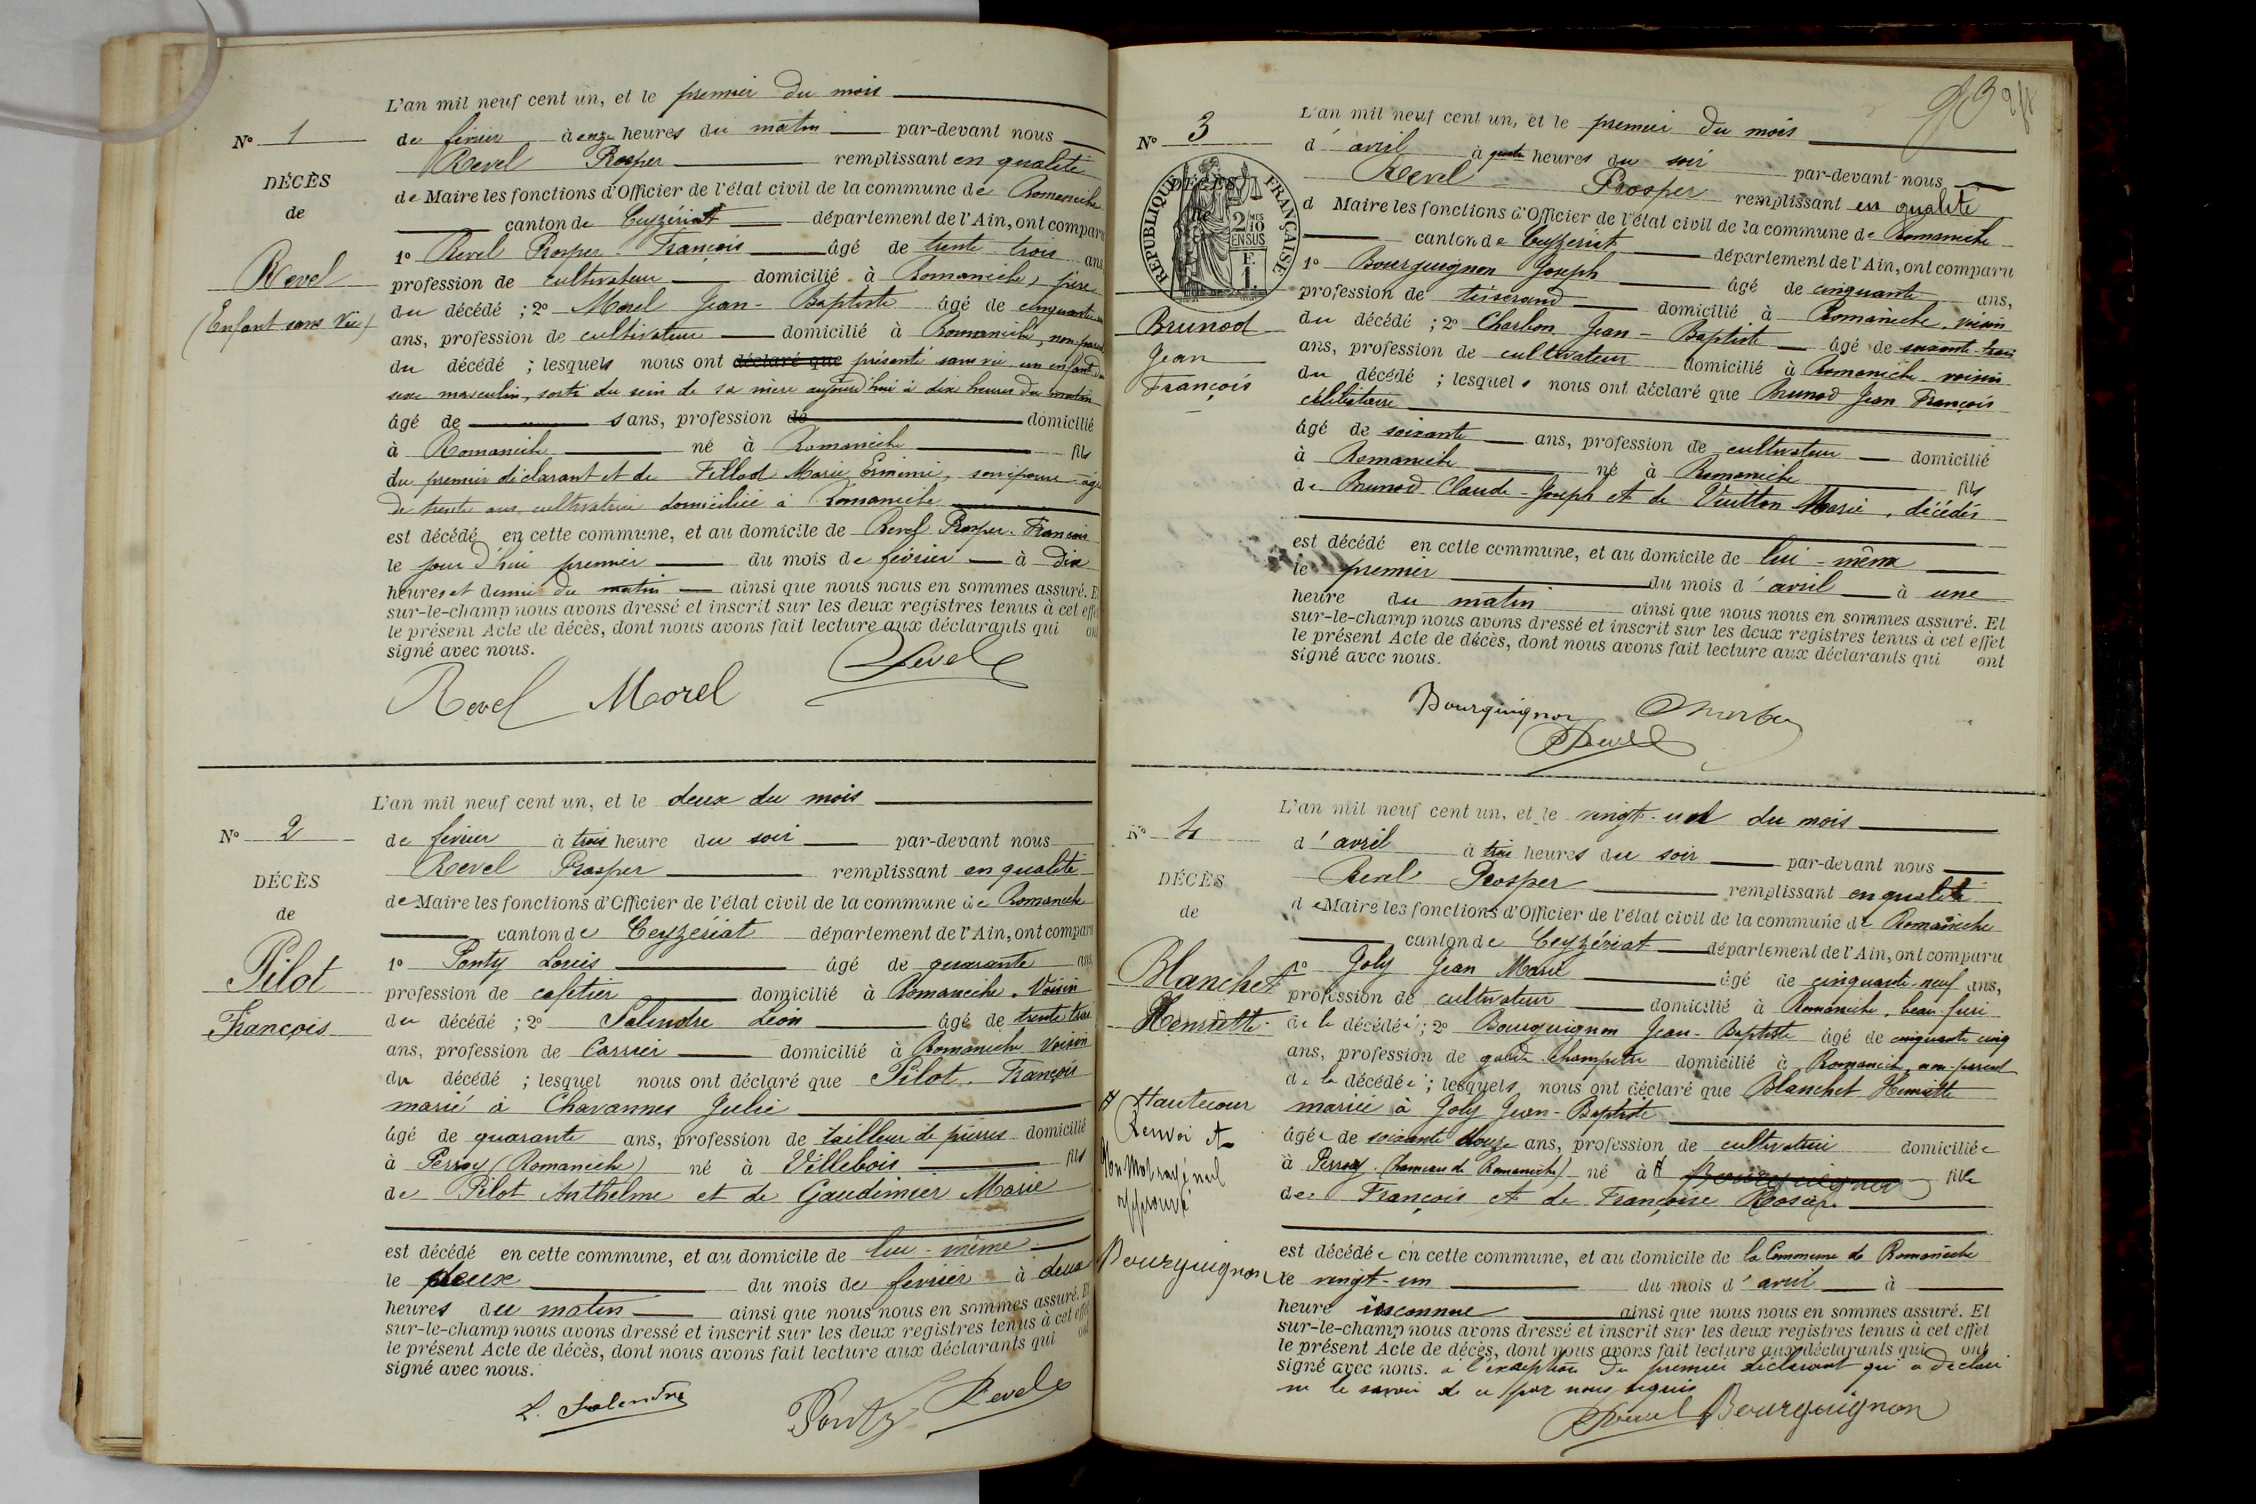 L'an mil neuf cent un, et le premier du mois
N° 1
de février à onze heures du matin par-devant nous
Revel Prosper remplissant en qualité
DÉCÈS
de Maire les fonctions d'Officier de l'état civil de la commune de Romanèche
de
canton de Ceyzériat département de l'Ain, ont comparu
1° Revel Prosper François âgé de trente trois ans
Revel
profession de cultivateur domicilié à Romanèche, père
(Enfant sans Vie)
du décédé ; 2° Morel Jean-Baptiste âgé de cinquante
ans, profession de cultivateur domicilié à Romanèche, non parent
du décédé ; lesquels nous ont déclaré que présenté sans vie un enfant du
sexe masculin, sorti du sein de sa mère aujourd'hui à dix heures du matin
âgé de sans, profession de domicilié
à Romanèche né à Romanèche fils
du premier déclarant et de Fillod Marie, son épouse âgée
de trente ans cultivatrice domiciliée à Romanèche
est décédé en cette commune, et au domicile de Revel Prosper François
le jour d'hui premier du mois de février à dix
heures et demie du matin ainsi que nous nous en sommes assuré. Et
sur-le-champ nous avons dressé et inscrit sur les deux registres tenus à cet effet
le présent Acte de décès, dont nous avons fait lecture aux déclarants qui ont
signé avec nous.
Revel Morel Revel
L'an mil neuf cent un, et le deux du mois
N° 2
de février à trois heure du soir par-devant nous
Revel Prosper remplissant en qualité
DÉCÈS
de Maire les fonctions d'Officier de l'état civil de la commune de Romanèche
de
canton de Ceyzériat département de l'Ain, ont comparu
Pilot
1° Ponty Louis âgé de quarante ans
profession de cafetier domicilié à Romanèche. Voisin
François
du décédé ; 2° Salendre Léon âgé de trente trois
ans, profession de Carrier domicilié à Romanèche Voisin
du décédé ; lesquel nous ont déclaré que Pilot François
marié à Chavannes Julie
âgé de quarante ans, profession de tailleur de pierres domicilié
à Perroy (Romanèche) né à Villebois fils
de Pilot Anthelme et de Gaudimier Marie
est décédé en cette commune, et au domicile de lui-même
le deux du mois de février à deux
heures du matin ainsi que nous nous en sommes assuré. Et
sur-le-champ nous avons dressé et inscrit sur les deux registres tenus à cet effet
le présent Acte de décès, dont nous avons fait lecture aux déclarants qui ont
signé avec nous.
L. Salendre Ponty Revel
L'an mil neuf cent un, et le premier du mois
N° 3
d'avril à quatre heures du soir par-devant nous
Revel Prosper remplissant en qualité
DÉCÈS
de
RÉPUBLIQUE FRANÇAISE
2/10 MES
EN SUS
F.
1.
d Maire les fonctions d'Officier de l'état civil de la commune de Romanèche
canton de Ceyzériat département de l'Ain, ont comparu
1° Bourguignon Joseph âgé de cinquante ans,
profession de tisserand domicilié à Romanèche, voisin
Brunod
du décédé ; 2° Charbon Jean-Baptiste âgé de soixante trois
Jean
ans, profession de cultivateur domicilié à Romanèche voisin
François
du décédé ; lesquels nous ont déclaré que Brunod Jean François
célibataire
âgé de soixante ans, profession de cultivateur domicilié
à Romanèche né à Romanèche fils
de Brunod Claude-Joseph et de Vuitton Marie, décédés
est décédé en cette commune, et au domicile de lui-même
le premier du mois d'avril à une
heure du matin ainsi que nous nous en sommes assuré. Et
sur-le-champ nous avons dressé et inscrit sur les deux registres tenus à cet effet
le présent Acte de décès, dont nous avons fait lecture aux déclarants qui ont
signé avec nous.
Bourguignon
Revel
L'an mil neuf cent un, et le vingt-un du mois
N° 4
d'avril à trois heures du soir par-devant nous
Revel Prosper remplissant en qualité
DÉCÈS
de Maire les fonctions d'Officier de l'état civil de la commune de Romanèche
de
canton de Ceyzériat département de l'Ain, ont comparu
Blanchet
1° Joly Jean Marie âgé de cinquante-neuf ans,
profession de cultivateur domicilié à Romanèche, beau-frère
Henriette
de la décédée ; 2° Bourguignon Jean-Baptiste âgé de cinquante cinq
ans, profession de garde champêtre domicilié à Romanèche, non parent
de la décédée ; lesquels nous ont déclaré que Blanchet Henriette
mariée à Joly Jean-Baptiste
âgée de soixante douze ans, profession de cultivatrice domiciliée
à Perroy (hameau de Romanèche) né à A Bourguignon fille
de François et de Françoise
A Hautecour
Renvoi A
Un mot rayé nul
approuvé
Bourguignon
est décédée en cette commune, et au domicile de la Commune de Romanèche
le vingt-un du mois d'avril à
heure inconnue ainsi que nous nous en sommes assuré. Et
sur-le-champ nous avons dressé et inscrit sur les deux registres tenus à cet effet
le présent Acte de décès, dont nous avons fait lecture aux déclarants qui ont
signé avec nous. à l'exception du premier déclarant qui a déclaré
ne le savoir de ce par nous requis
Revel Bourguignon